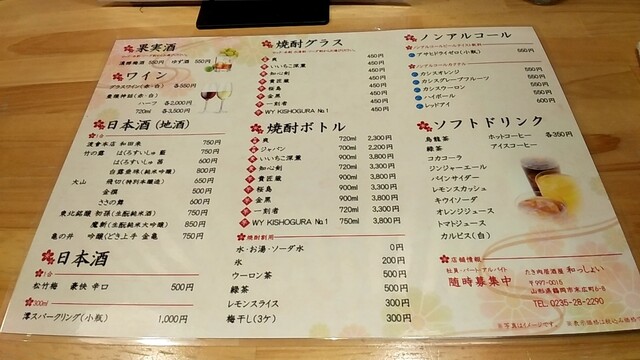 果実酒
550円 ゆず酒 550円
ワイン
グラスワイン(赤・白) 各550円
ハーフ 各2,000円
720ml 各3,500円
日本酒(地酒)
1合
渡會本店 和田来 750円
竹の露 はくろすいしゅ 藍 750円
はくろすいしゅ 茜 600円
白露垂珠(純米吟醸) 800円
大山 飛切(特別本醸造) 650円
金撰 500円
ささの舞 600円
東北銘醸 初孫(生酛純米酒) 750円
魔斬(生酛純米大吟醸) 850円
亀の井 吟醸(くどき上手 金亀) 750円
日本酒
1合
松竹梅 豪快 辛口 500円
300ml
澪スパークリング(小瓶) 1,000円
焼酎グラス
爽 450円
いいちこ深薫 450円
知心剣 450円
貴匠蔵 450円
桜島 450円
金黒 450円
一刻者 450円
WY KISHOGURA No.1 450円
焼酎ボトル
爽 720ml 2,300円
ジャパン 700ml 2,200円
いいちこ深薫 900ml 3,800円
知心剣 720ml 3,300円
貴匠蔵 900ml 3,300円
桜島 900ml 3,300円
金黒 900ml 3,300円
一刻者 720ml 3,300円
WY KISHOGURA No.1 750ml 3,800円
焼酎割用
水・お湯・ソーダ水 0円
氷 200円
ウーロン茶 500円
緑茶 500円
レモンスライス 300円
梅干し(3ケ) 300円
ノンアルコール
アサヒドライゼロ(小瓶) 550円
ノンアルコールカクテル
カシスオレンジ 550円
カシスグレープフルーツ 550円
カシスウーロン 550円
ハイボール 550円
レッドアイ 600円
ソフトドリンク
各350円
烏龍茶 ホットコーヒー
緑茶 アイスコーヒー
コカコーラ
ジンジャーエール
パインサイダー
レモンスカッシュ
キウイソーダ
オレンジジュース
トマトジュース
カルピス(白)
店舗情報
社員・パート・アルバイト
随時募集中
たき肉居酒屋 和っしょい
〒997-0015
山形県鶴岡市末広町6-8
TEL.0235-28-2290
※写真はイメージです。 ※表示価格は税込み価格です